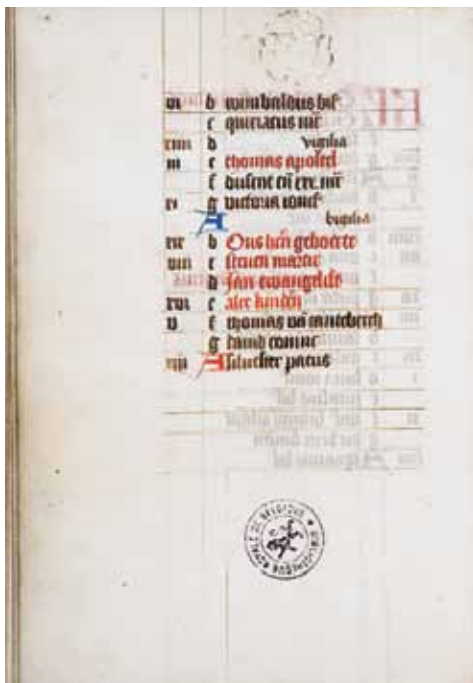 vi b wunibaldus bis
c quiriacus mr
xiiii d vigilia
iii e thomas apostel
f dusent en xxx mr
xi g victoria ionef
A vigilia
xix b Ons hen geboerte
viii c steuen martir
d jan ewangelist
xvi e alre kinder
v f thomas van cantelberch
g dauid coninc
xiii A siluester paeus
BIBLIOTHEQUE ROYALE DE BELGIQUE